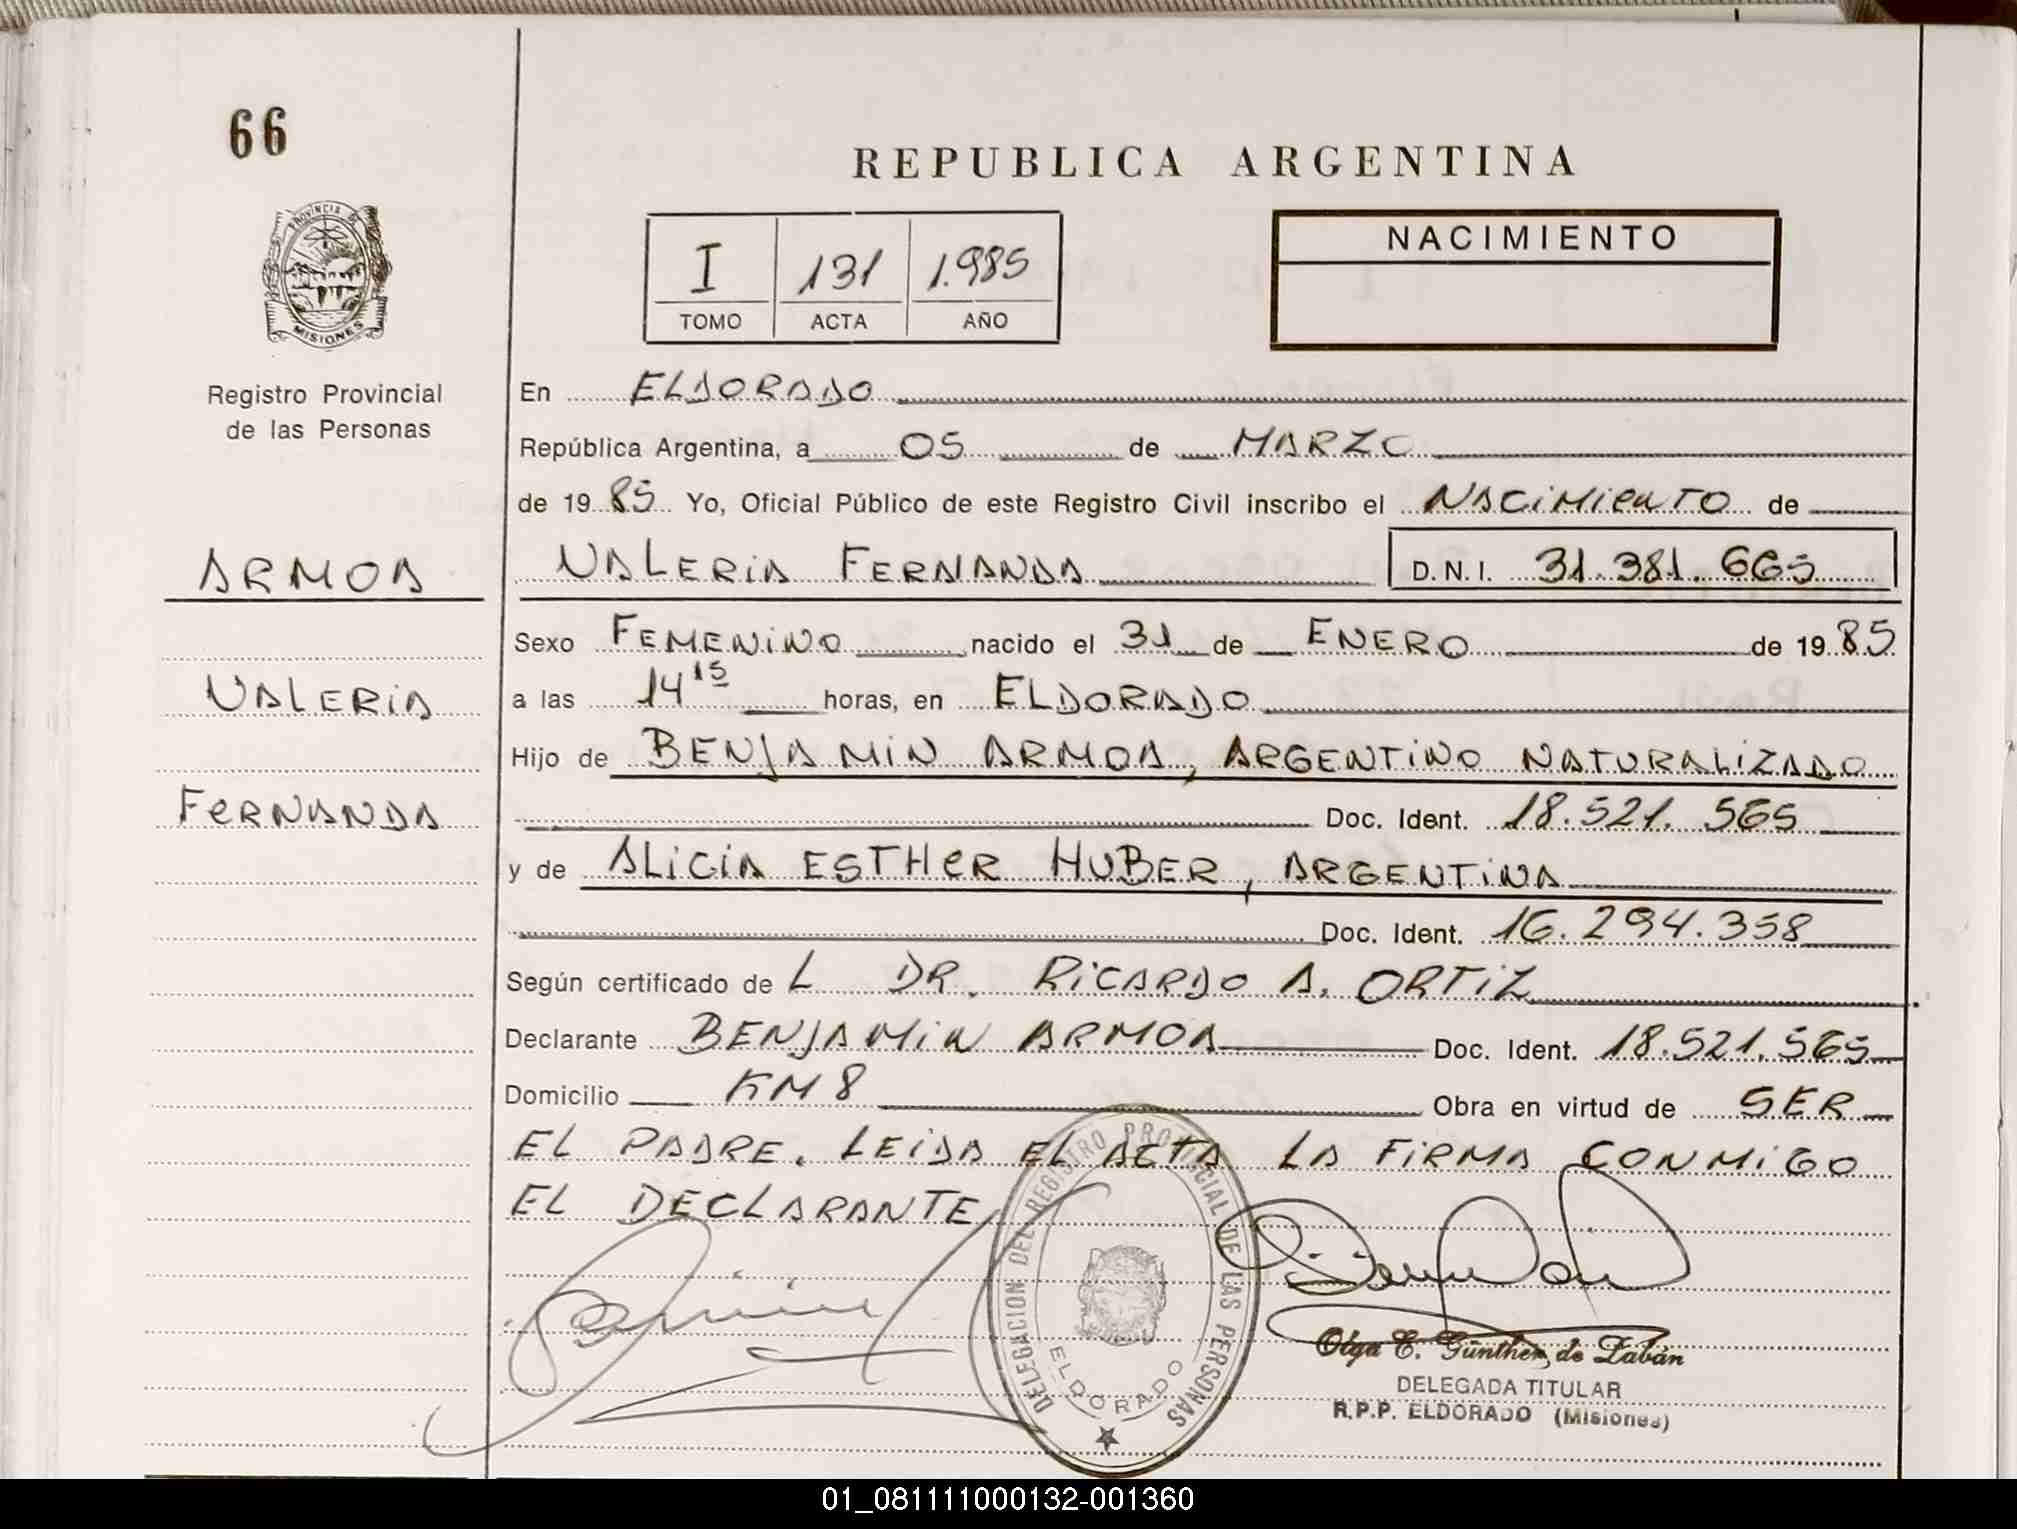 66
REPUBLICA ARGENTINA
PROVINCIA DE
MISIONES
I 131 1.985
TOMO ACTA AÑO
NACIMIENTO
Registro Provincial
de las Personas
En ELDORADO
República Argentina, a 05 de MARZO
de 1985 Yo, Oficial Público de este Registro Civil inscribo el NACIMIENTO de
ARMOA
VALERIA FERNANDA D.N.I. 31.381.665
Sexo FEMENINO nacido el 31 de ENERO de 1985
VALERIA
a las 14 15 horas, en ELDORADO
Hijo de BENJAMIN ARMOA, ARGENTINO NATURALIZADO
FERNANDA
Doc. Ident. 18.521.565
y de ALICIA ESTHER HUBER, ARGENTINA
Doc. Ident. 16.294.358
Según certificado de L DR. RICARDO A. ORTIZ
Declarante BENJAMIN ARMOA Doc. Ident. 18.521.565
Domicilio KM 8 Obra en virtud de SER
EL PADRE. LEIDA EL ACTA LA FIRMA CONMIGO
EL DECLARANTE
DELEGACION DEL REGISTRO PROVINCIAL DE LAS PERSONAS
ELDORADO
Olga E. Günther de Labán
DELEGADA TITULAR
R.P.P. ELDORADO (Misiones)
01_081111000132-001360